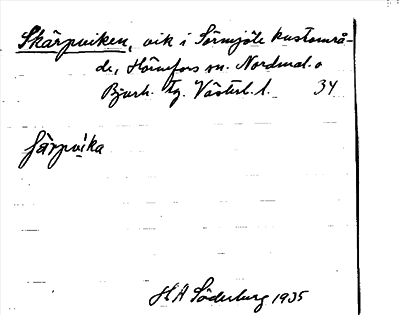 Skärpviken, vik i Sörmjöle kustområ-
de, Hörnefors sn. Nordmal. o
Bjurh. tg. Västerb. l. 34
Särpvika
H A Söderberg 1935